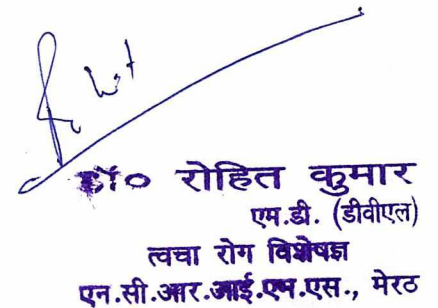 डॉ० रोहित कुमार
एम.डी. (डीवीएल)
त्वचा रोग विशेषज्ञ
एन.सी.आर.आई.एम.एस., मेरठ